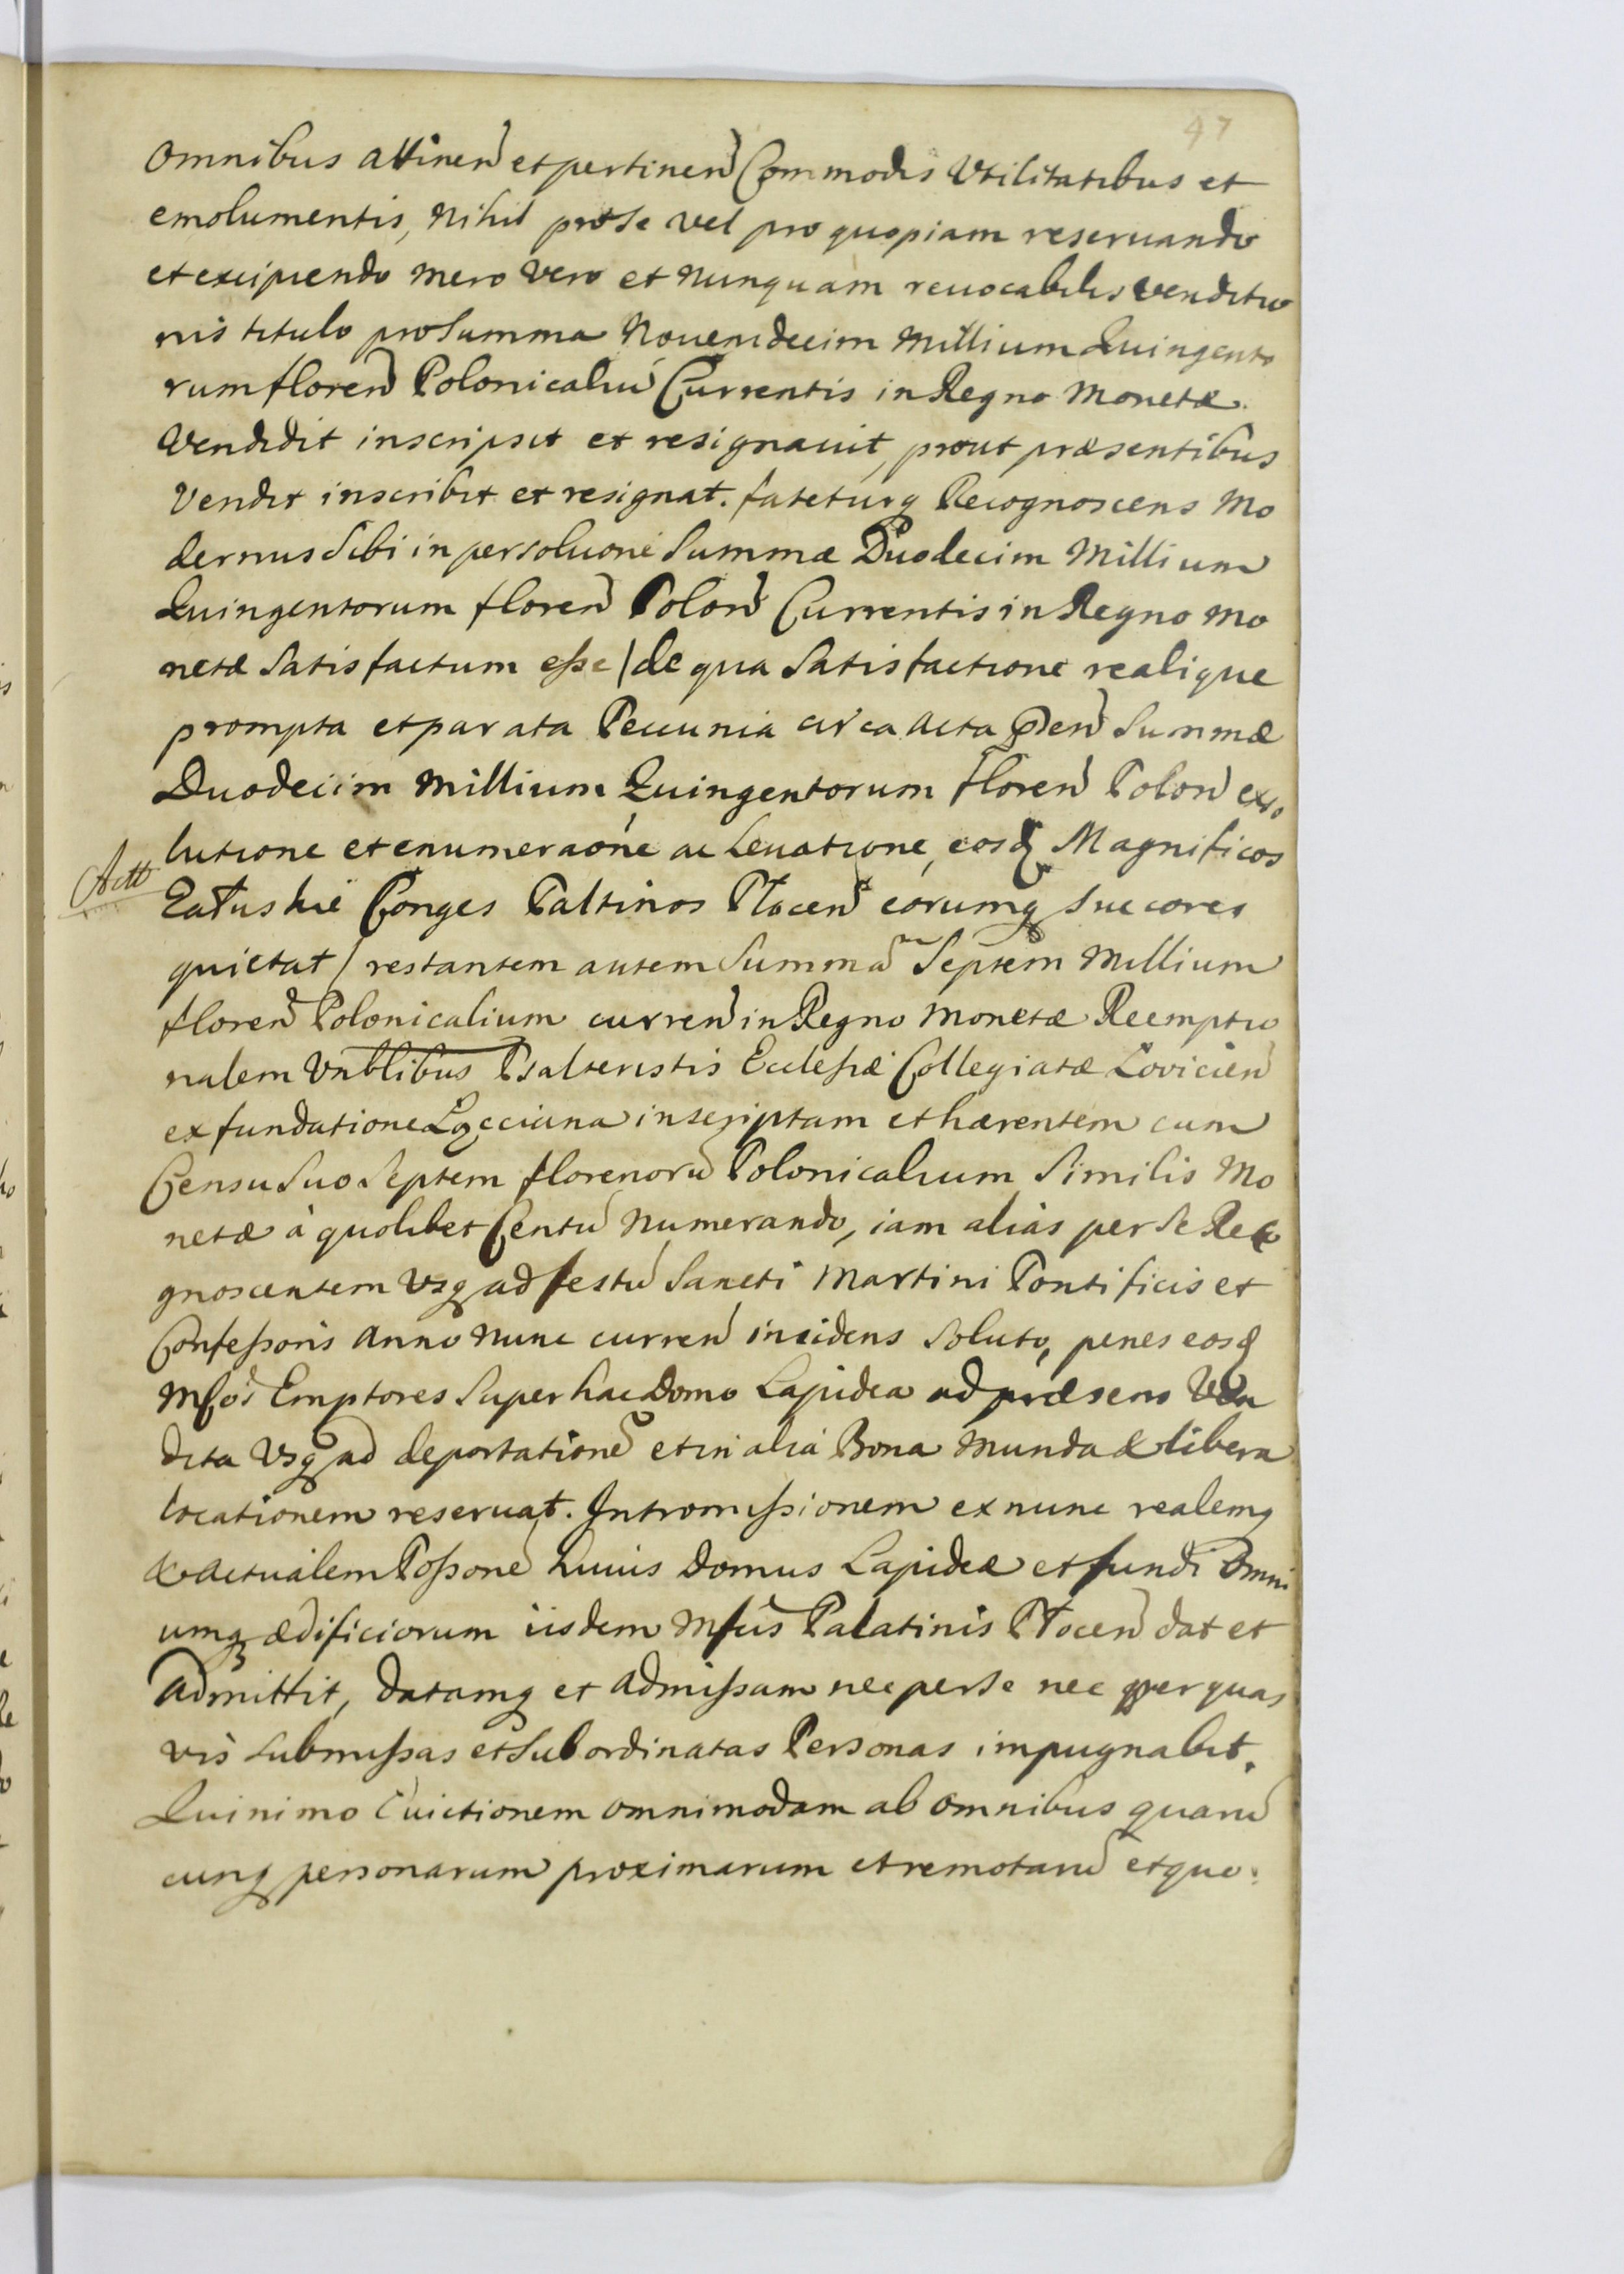 47
Omnibus attinen̄ et pertinen̄ Commodis Vtilitatibus et
emolumentis, Nihil pro se vel pro quopiam reseruando
et excipiendo mero vero et nunquam reuocabilis venditio
nis titulo pro Summa Nouemdecim Millium Quingento
rum floren̄ Polonicaliū Currentis in Regno Monetæ
Vendidit inscripsit et resignauit, prout præsentibus
Vendit inscribit et resignat. fateturq Recognoscens Mo
dernus Sibi in persoluōne Summæ Duodecim Millium
Quingentorum floren̄ Polon̄ Currentis in Regno Mo
netæ Satisfactum esse / de qua Satisfactione realique
prompta et parata Pecunia circa acta p̄sen̄ Summæ
Duodecim Millium Quingentorum floren̄ Polon̄ exso
lutione et enumeraōne ac leuatione, eosq Magnificos
Załuskie Conges Paltinos Płocen̄ eorumq succores
quietat / restantem autem Summā Septem Millium
floren̄ Polonicalium curren̄ in Regno Monetæ Reemptio
nalem Vnblibus Psalteristis Ecclesiæ Collegiatæ Lovicien̄
ex fundatione Łącciana inscriptam et hærentem cum
Censu Suo Septem florenorū Polonicalium Similis Mo
netæ à quolibet Centū Numerando, iam aliàs per Se Reco
gnoscentem Vsq ad festū Sancti Martini Pontificis et
Confessoris Anno Nunc curren̄ incidens Soluto, penes eosq
Mfcos Emptores Super hac Domo Lapidea ad præsens Ven
dita Vsq ad deportationē et in alia Bona Munda & libera
locationem reseruat. Intromissionem ex nunc realemq
& actualem Possonē huius Domus Lapideæ et fundi Omni
umq ædificiorum iisdem Mfcis Palatinis Płocen̄ dat et
admittit, datamq et admissam nec per Se nec per quas
vis submissas et Subordinatas Personas impugnabit.
Quinimo Euictionem omnimodam ab omnibus quarū
cunq personarum proximarum et remotarū et quo:
Actt